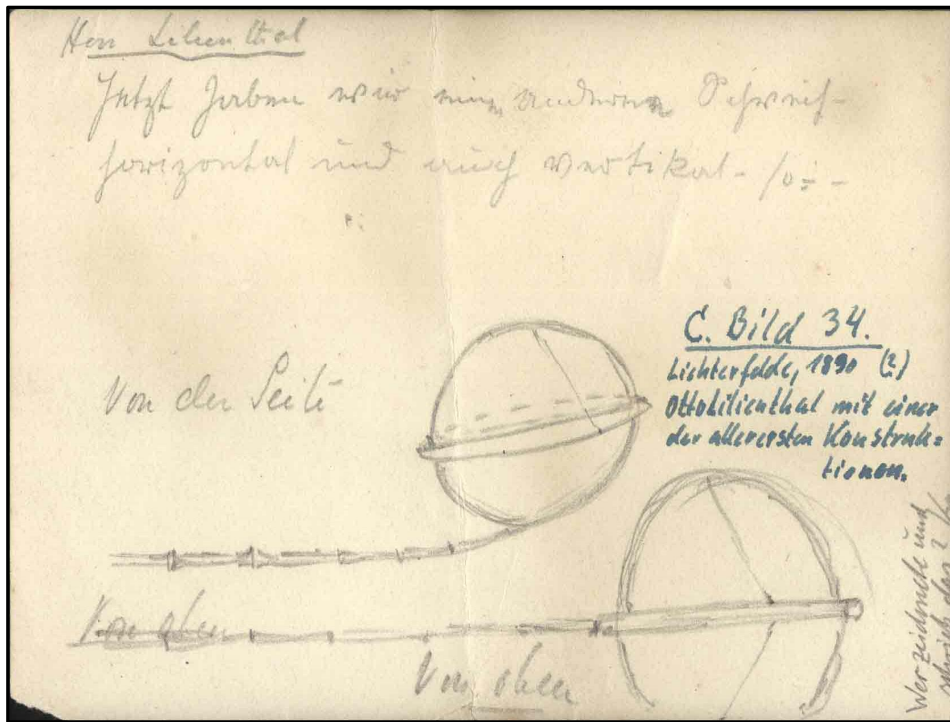 Herr Lilienthal
Jetzt haben wir einen anderen Schweif-
horizontal und auch vertikal - so: -
Von der Seite
C. Bild 34.
Lichterfelde, 1890 (?)
Otto Lilienthal mit einer
der allerersten Konstruk=
tionen.
Von oben
Von oben
Wer zeichnete und
schrieb das?